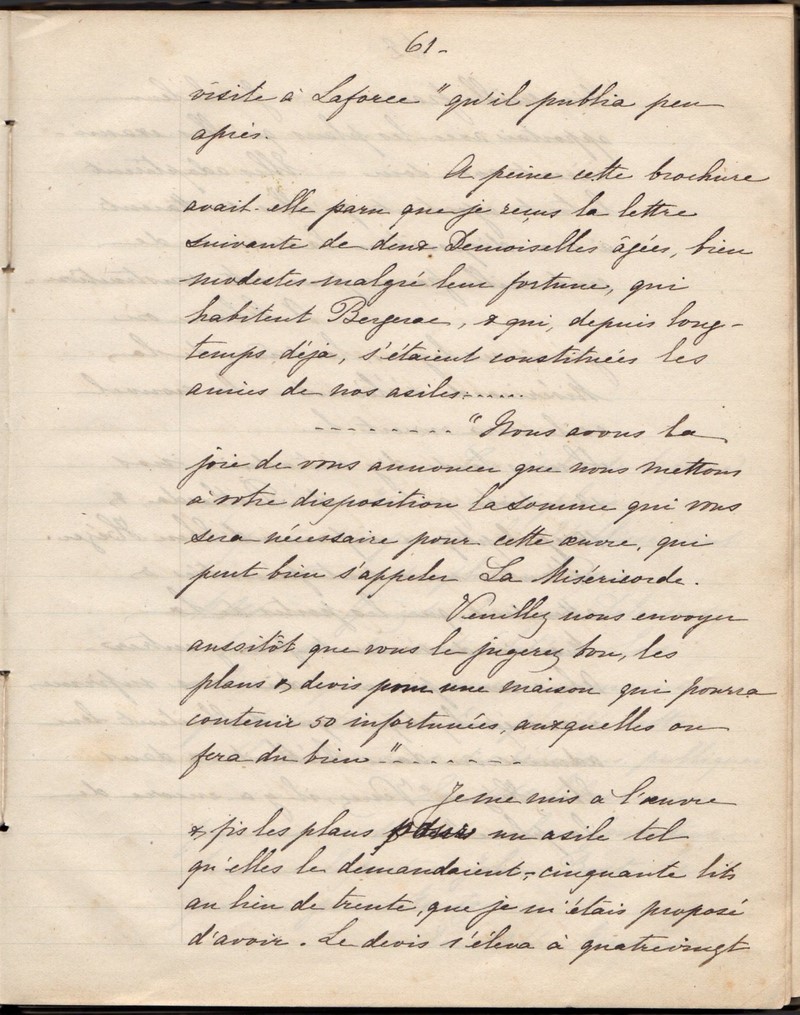 61-
visite à Laforce" qu'il publia peu
après.
A peine cette brochure
avait-elle paru que je reçus la lettre
suivante de deux Demoiselles âgées, bien
modestes malgré leur fortune, qui
habitent Bergerac, & qui, depuis long-
temps déjà, s'étaient constituées les
amies de nos asiles.......
-------- "Nous avons la
joie de vous annoncer que nous mettons
à votre disposition la somme qui vous
sera nécessaire pour cette œuvre, qui
peut bien s'appeler La Miséricorde.
Veuillez nous envoyer
aussitôt que vous le jugerez bon, les
plans & devis pour une maison qui pourra
contenir 50 infortunées, auxquelles on
fera du bien"--------
Je me mis à l'œuvre
& fis les plans pour un asile tel
qu'elles le demandaient, cinquante lits
au lieu de trente, que je m'étais proposé
d'avoir. Le devis s'éleva à quatrevingt